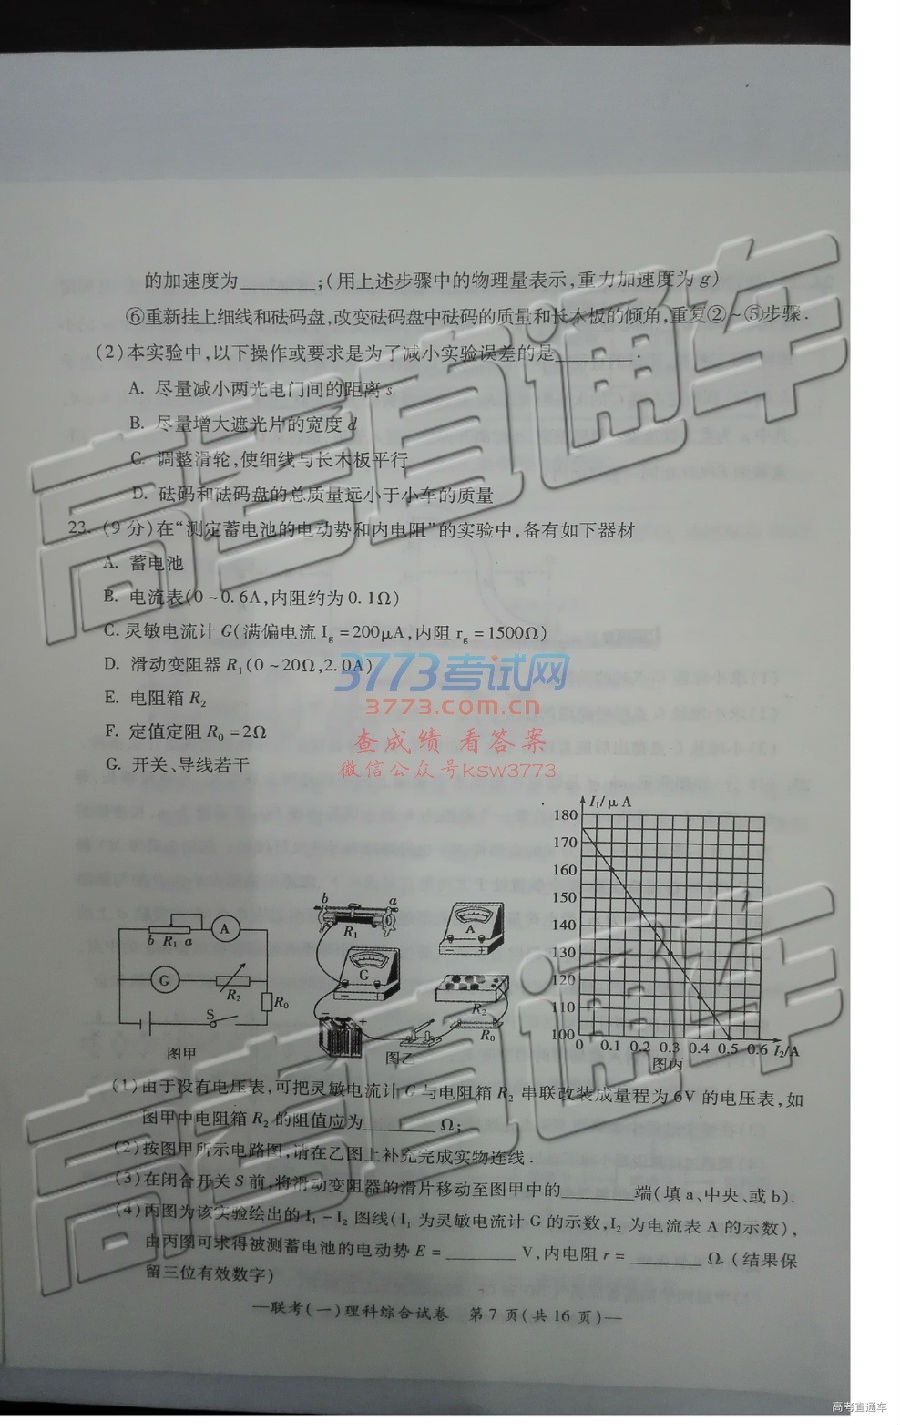 的加速度为________;(用上述步骤中的物理量表示,重力加速度为 g)
⑥重新挂上细线和砝码盘,改变砝码盘中砝码的质量和长木板的倾角,重复②~⑤步骤.
(2)本实验中,以下操作或要求是为了减小实验误差的是________.
A. 尽量减小两光电门间的距离 s
B. 尽量增大遮光片的宽度 d
C. 调整滑轮,使细线与长木板平行
D. 砝码和砝码盘的总质量远小于小车的质量
23. (9分)在“测定蓄电池的电动势和内电阻”的实验中,备有如下器材
A. 蓄电池
B. 电流表(0~0.6A,内阻约为0.1Ω)
C. 灵敏电流计 G(满偏电流 Ig =200μA,内阻 rg =1500Ω)
D. 滑动变阻器 R1(0~20Ω,2.0A)
E. 电阻箱 R2
F. 定值定阻 R0 =2Ω
G. 开关、导线若干
3773考试网
3773.com.cn
查成绩 看答案
微信公众号ksw3773
I1/μA
180
170
160
150
140
130
120
110
100
0 0.1 0.2 0.3 0.4 0.5 0.6 I2/A
图丙
b R1 a A
G R2 R0
S
图甲
b a
R1 A
G
R2
R0
- +
图乙
(1)由于没有电压表,可把灵敏电流计 G 与电阻箱 R2 串联改装成量程为6V的电压表,如
图甲中电阻箱 R2 的阻值应为________Ω;
(2)按图甲所示电路图,请在乙图上补充完成实物连线.
(3)在闭合开关S前,将滑动变阻器的滑片移动至图甲中的________端(填a、中央、或b).
(4)丙图为该实验绘出的 I1-I2 图线(I1 为灵敏电流计 G 的示数,I2 为电流表 A 的示数),
由丙图可求得被测蓄电池的电动势 E=________V,内电阻 r=________Ω.(结果保
留三位有效数字)
—联考(一)理科综合试卷 第7页(共16页)—
高考直通车
高考直通车
高考直通车